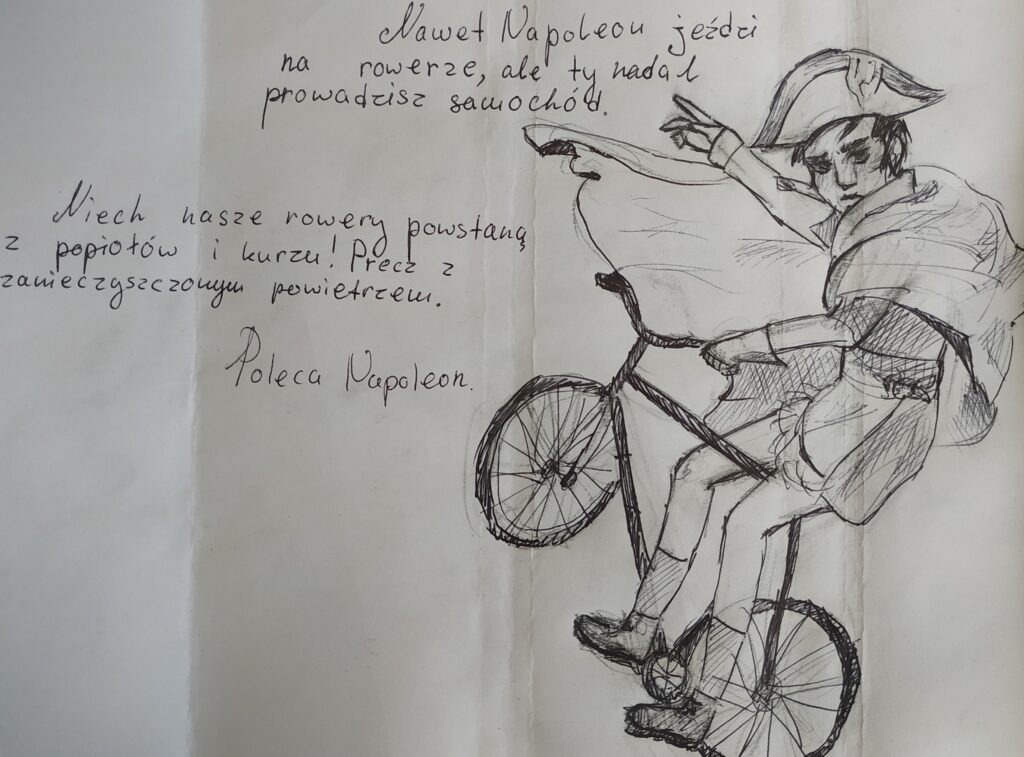 Nawet Napoleon jeździ
na rowerze, ale ty nadal
prowadzisz samochód.
Niech nasze rowery powstaną
z popiołów i kurzu! Precz z
zanieczyszczonym powietrzem.
Poleca Napoleon.